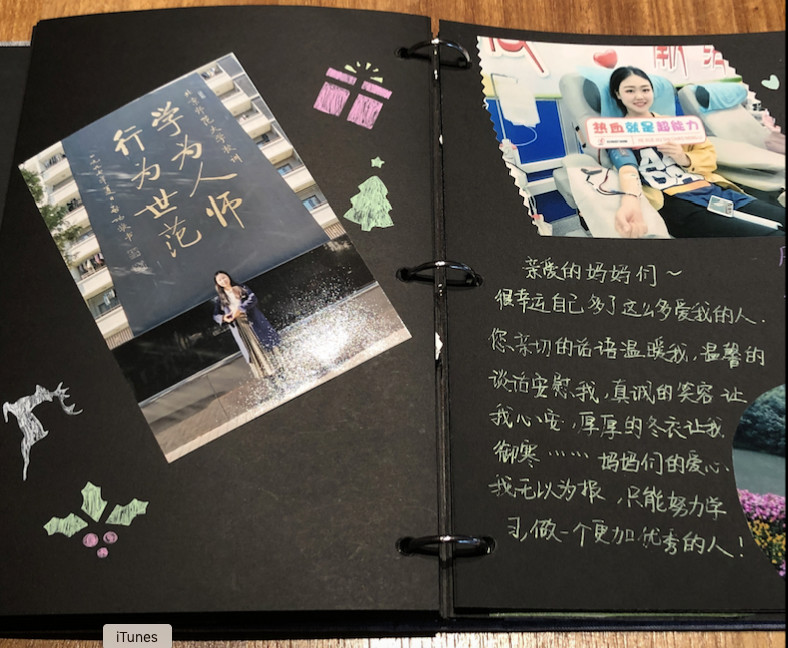 学为人师
行为世范
热血就是超能力
亲爱的妈妈们～
很幸运自己多了这么多爱我的人.
您亲切的话语温暖我,温馨的
谈话安慰我,真诚的笑容让
我心安,厚厚的冬衣让我
御寒……妈妈们的爱心,
我无以为报,只能努力学
习,做一个更加优秀的人!
iTunes